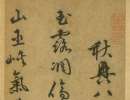 秋興八
玉露凋傷
山巫峽氣